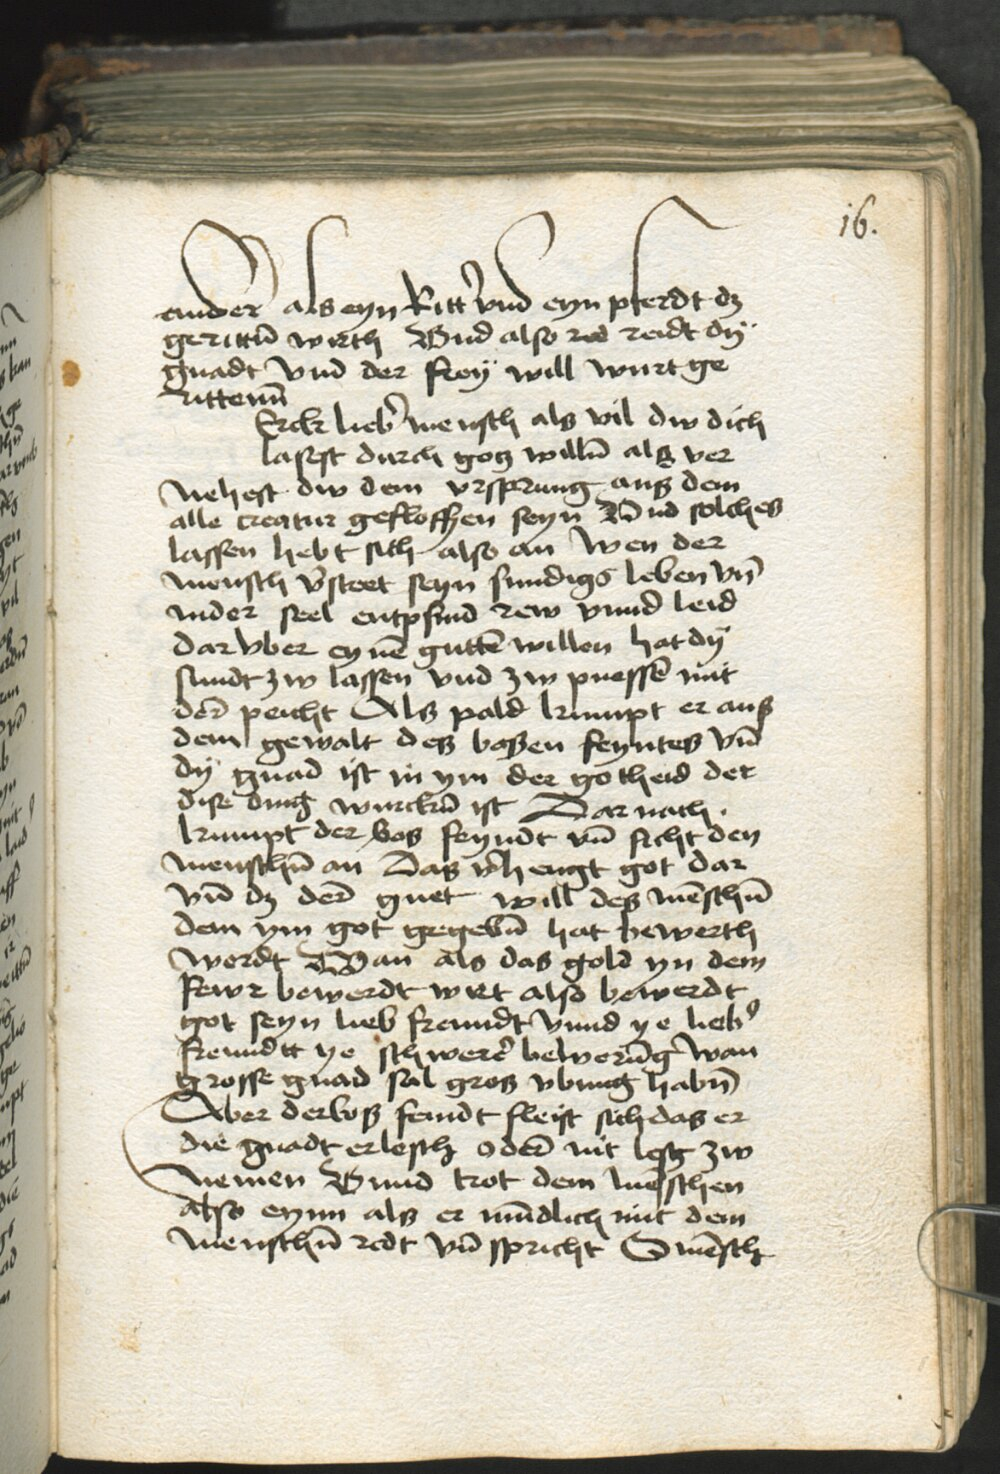 16.
ander als eyn Ritt᾽ vnd eyn pferdt dz
gerittn̄ wirth Vnd also red reidt dy
gnadt vnd der frey will wurt ge
rittenn̄
Erck lieb᾽ mensch als vil diw dich
lasest durch gotz willn̄ als ver
nehest diw dem vrsprung aus dem
alle creatur geflossen seyn Vnd solches
lassen hebt sich also an Wen der
mensch v᾽steet seyn sundigs leben vn̄
inder seel entpfind rew vnnd leid
darvber eynē guttē willen hat dy
sundt zw lassen vnd zw puessē mit
der peicht Als pald kumpt er aus
dem gewalt des bosen feyntes vn̄
dy gnad ist in ym der gotheid der
dise ding wurckn̄ ist Dar nach
kumpt der bos feyndt vn̄ ficht den
menschn̄ an Das v᾽hengt got dar
vm̄ dz der guet will des mēschn̄
dem ym got gegebn̄ hat bewerth
werdt Wan als das gold yn dem
fewr bewerdt wirt also bewerdt
got seyn lieb freundt vnnd ye lieb᾽
freundtt ye schwerer bewerūg wan
grosse gnad sal gros vbung habn̄
Aber der bos feindt fleist sich das er
die gnadt erlesch oder mit lest zw
nemen Vnnd trot dem menschen
also eynn als er mūdlich mit dem
menschn̄ redt vn̄ spricht O mēsch